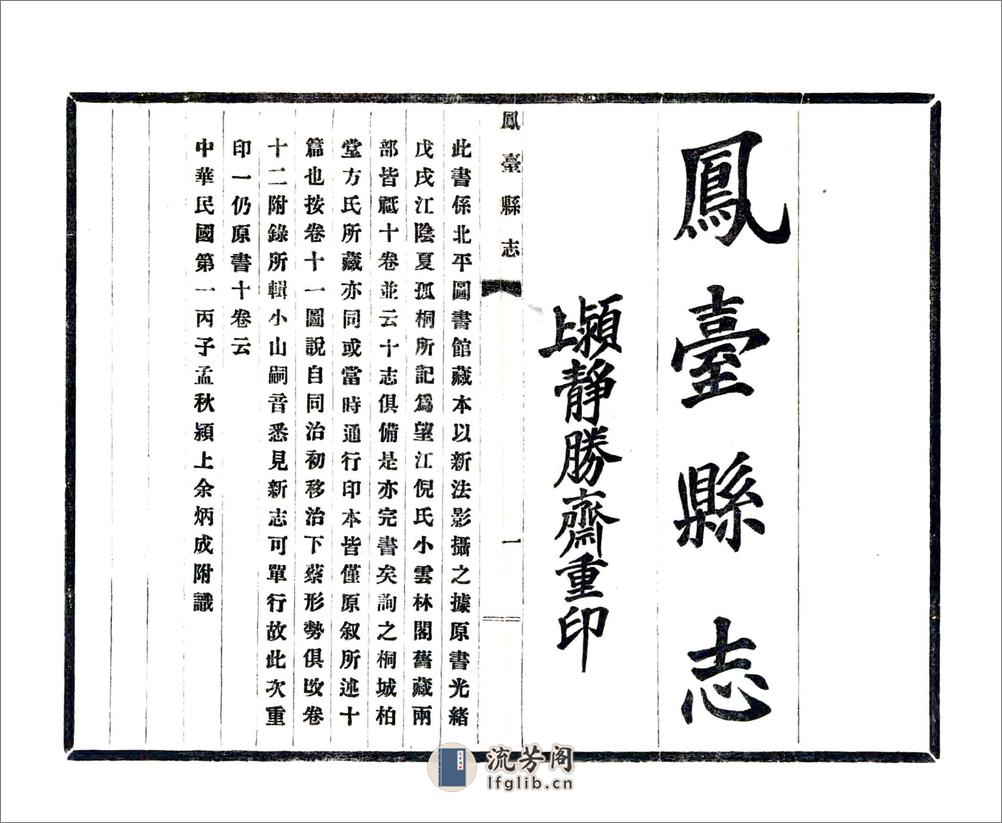 鳳臺縣志
潁上靜勝齋重印
鳳臺縣志
一
此書係北平圖書館藏本以新法影攝之據原書光緒
戊戌江陰夏孤桐所記爲望江倪氏小雲林閣舊藏兩
部皆祗十卷並云十志俱備是亦完書矣詢之桐城柏
堂方氏所藏亦同或當時通行印本皆僅原叙所述十
篇也按卷十一圖說自同治初移治下蔡形勢俱改卷
十二附錄所輯小山嗣音悉見新志可單行故此次重
印一仍原書十卷云
中華民國第一丙子孟秋潁上余炳成附識
流芳阁
lfglib.cn